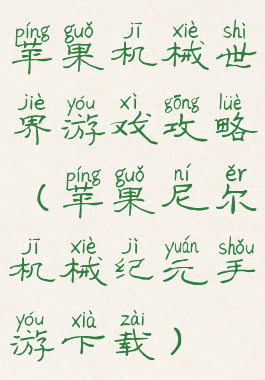 píng guǒ jī xiè shì
苹果机械世
jiè yóu xì gōng lüè
界游戏攻略
píng guǒ ní ěr
（苹果尼尔
jī xiè jì yuán shǒu
机械纪元手
yóu xià zài
游下载）